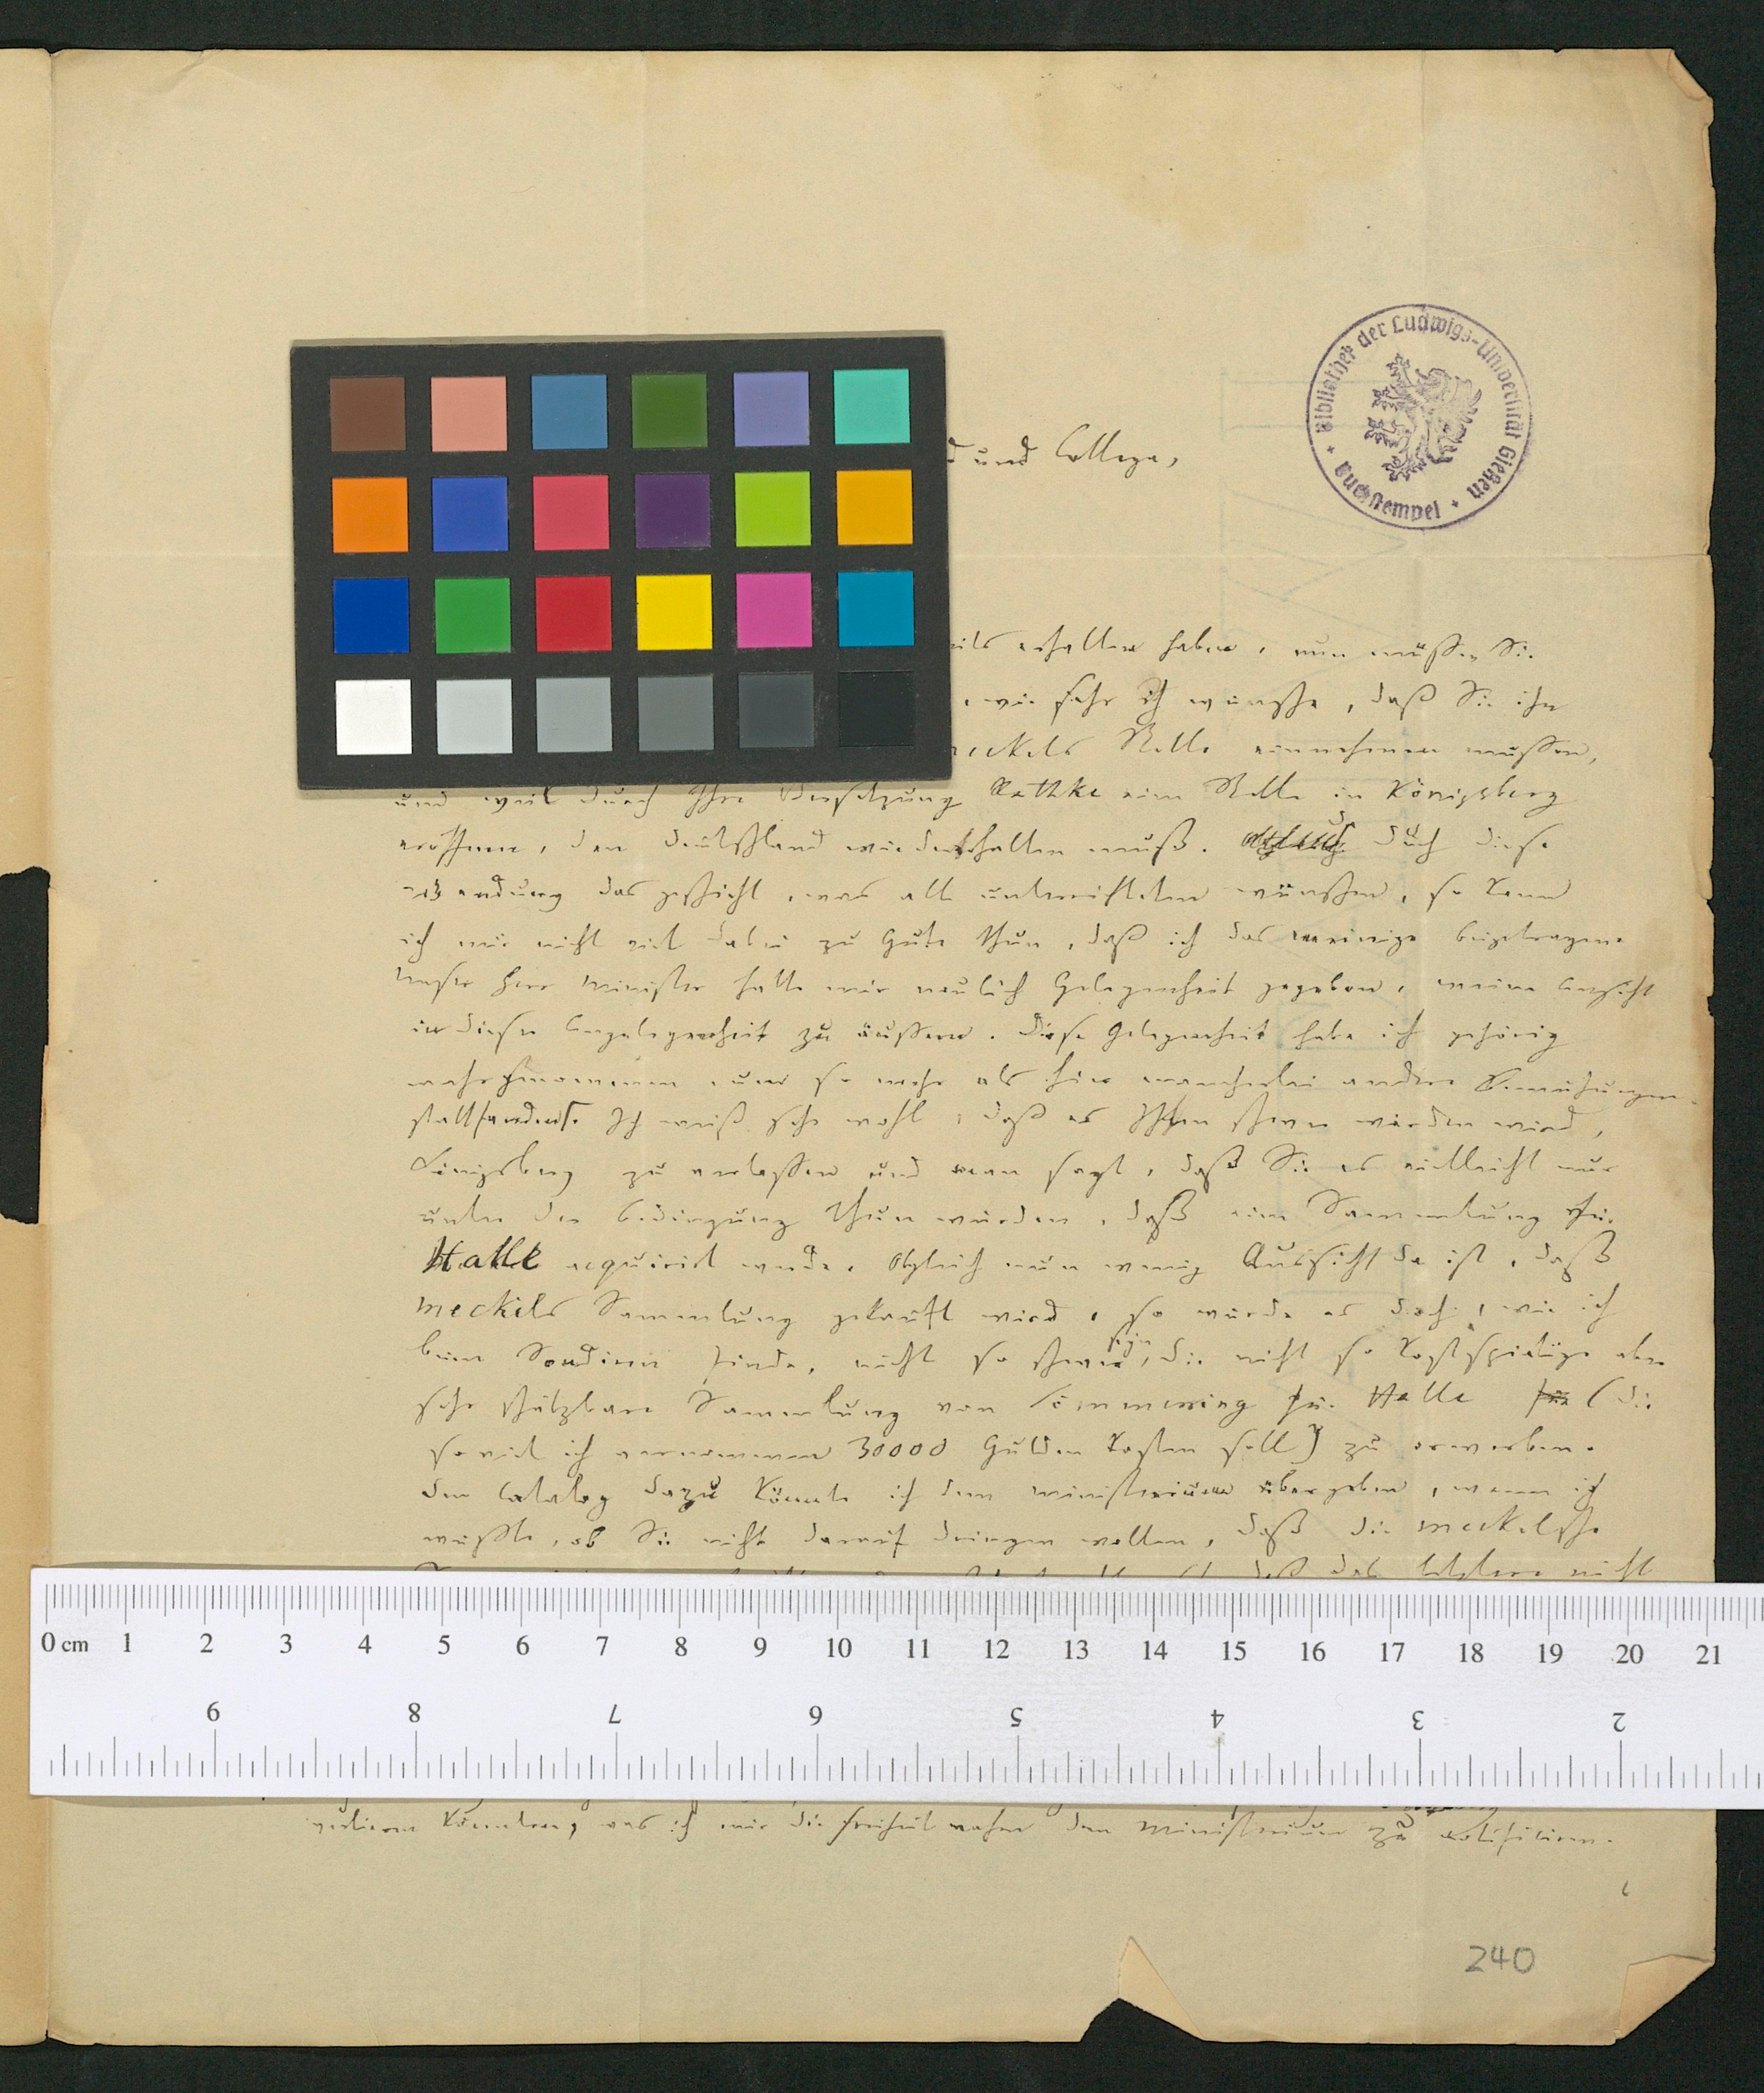 Bibliothek der Ludwigs-Universität Gießen
+ Buchstempel +
und College,
erhalten haben, nun müssen Sie
, wie sehr ich wünsche, daß Sie ihn
meckels Stelle einnehmen müssen,
und weil durch Ihre Versetzung Rathke eine Stelle in Königsberg
eröffnen, den Deutschland wiedererhalten muß. durch diese
Wendung das geschieht, was alle unterrichteten wünschen, so kann
ich mir nicht viel dabei zu Gute thun, daß ich das meinige beigetragen.
Unser Herr Minister hatte mir neulich Gelegenheit gegeben, meine Ansicht
in dieser Angelegenheit zu äußern. Diese Gelegenheit habe ich gehörig
wahrgenommen, um so mehr als hier mancherlei andere Bemühungen
stattfanden. Ich weiß sehr wohl, daß es Ihnen schwer werden wird,
Königsberg zu verlassen und man sagt, daß Sie es vielleicht nur
unter der Bedingung thun würden, daß eine Sammlung für
Halle acquirirt werde. Obgleich nun wenig Aussicht da ist, daß
meckels Sammlung gekauft wird, so würde es doch, wie ich
beim Sondiren finde, nicht so schwer sein, die nicht so kostspielige aber
sehr schätzbare Sammlung von Sömmering für Halle für (die
so viel ich vernommen 30000 Gulden kosten soll) zu erwerben.
Den Catalog dazu könnte ich dem Ministerium übergeben, wenn ich
wüßte, ob Sie nicht darauf dringen wollen, daß die meckelsche
daß das letztere nicht
verlieren könnten, was ich mir die Freiheit nahm dem Ministerium zu notificiren.
240
0 cm 1 2 3 4 5 6 7 8 9 10 11 12 13 14 15 16 17 18 19 20 21
9 8 7 6 5 4 3 2